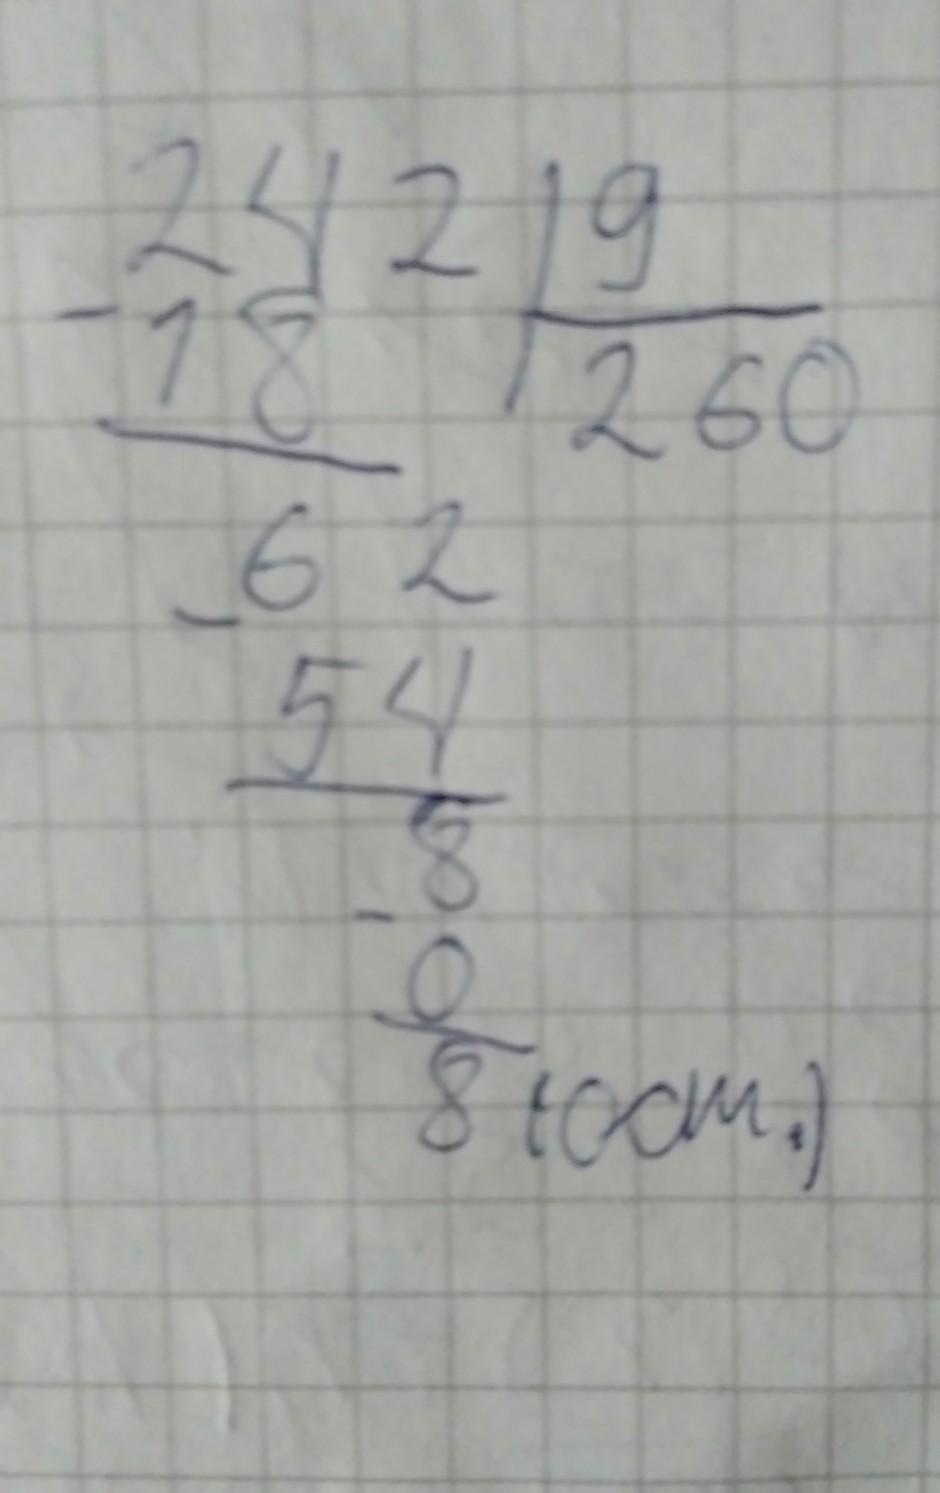 242 | 9
- 18 | 260
- 62
54
- 8
0
8 (ост.)